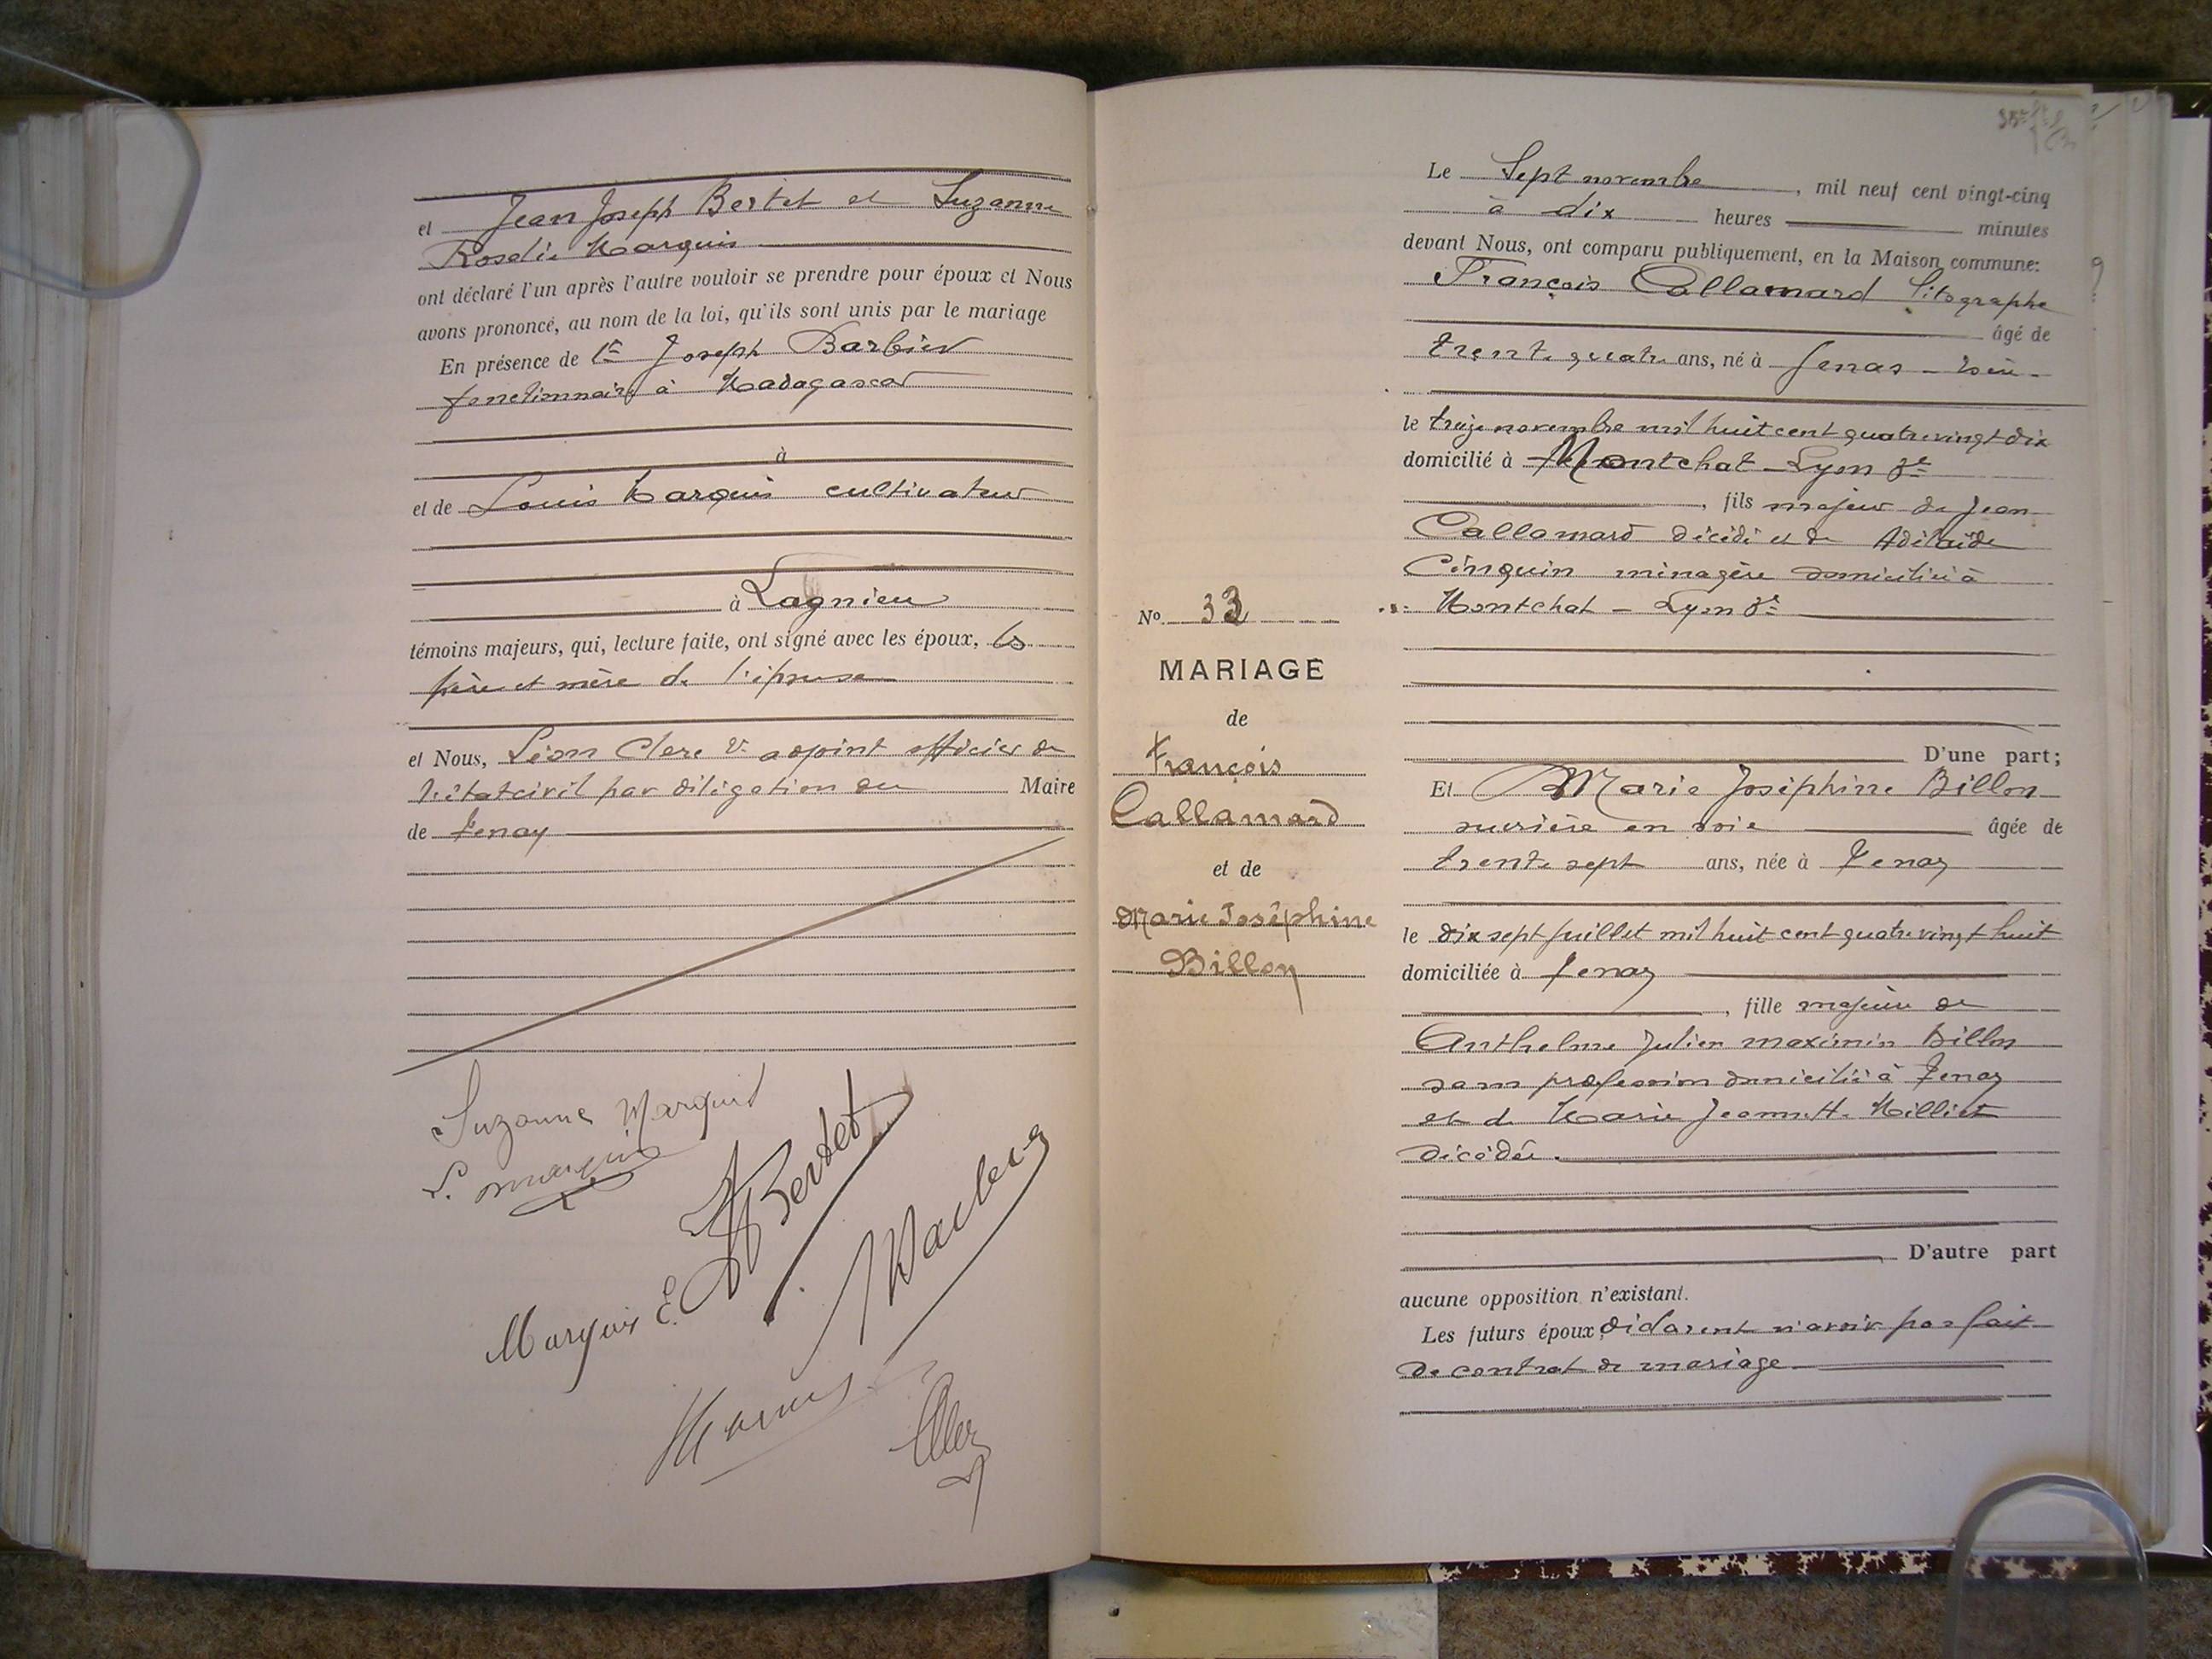 et Jean Joseph Bertet et Suzanne
Rosalie Marquis
ont déclaré l'un après l'autre vouloir se prendre pour époux et Nous
avons prononcé, au nom de la loi, qu'ils sont unis par le mariage
En présence de 1° Joseph Barbier
fonctionnaire à Madagascar
à
et de Louis Marquis cultivateur
à Lagnieu
témoins majeurs, qui, lecture faite, ont signé avec les époux, les
père et mère de l'épouse
et Nous, Léon Clerc adjoint officier de
l'état civil par délégation du Maire
de Tenay
Suzanne Marquis
L. Marquis
Bertet
Marquis E.
Le Sept novembre, mil neuf cent vingt-cinq
à dix heures minutes
devant Nous, ont comparu publiquement, en la Maison commune:
François Callamard litographe
âgé de
trente quatre ans, né à Genas - Isère -
le treize novembre mil huit cent quatre vingt dix
domicilié à Montchat - Lyon 3e
, fils majeur de Jean
Callamard décédé et de Adélaïde
Cinquin ménagère domiciliée à
Montchat - Lyon 3e
D'une part;
Et Marie Joséphine Billon
ouvrière en soie âgée de
trente sept ans, née à Tenay
le dix sept juillet mil huit cent quatre vingt huit
domiciliée à Tenay
, fille majeure de
Anthelme Julien maximin Billon
sans profession domicilié à Tenay
et de Marie Jeannette Milliet
décédée.
D'autre part
aucune opposition n'existant.
Les futurs époux déclarent n'avoir pas fait
de contrat de mariage
No 33
MARIAGE
de
François
Callamard
et de
Marie Joséphine
Billon